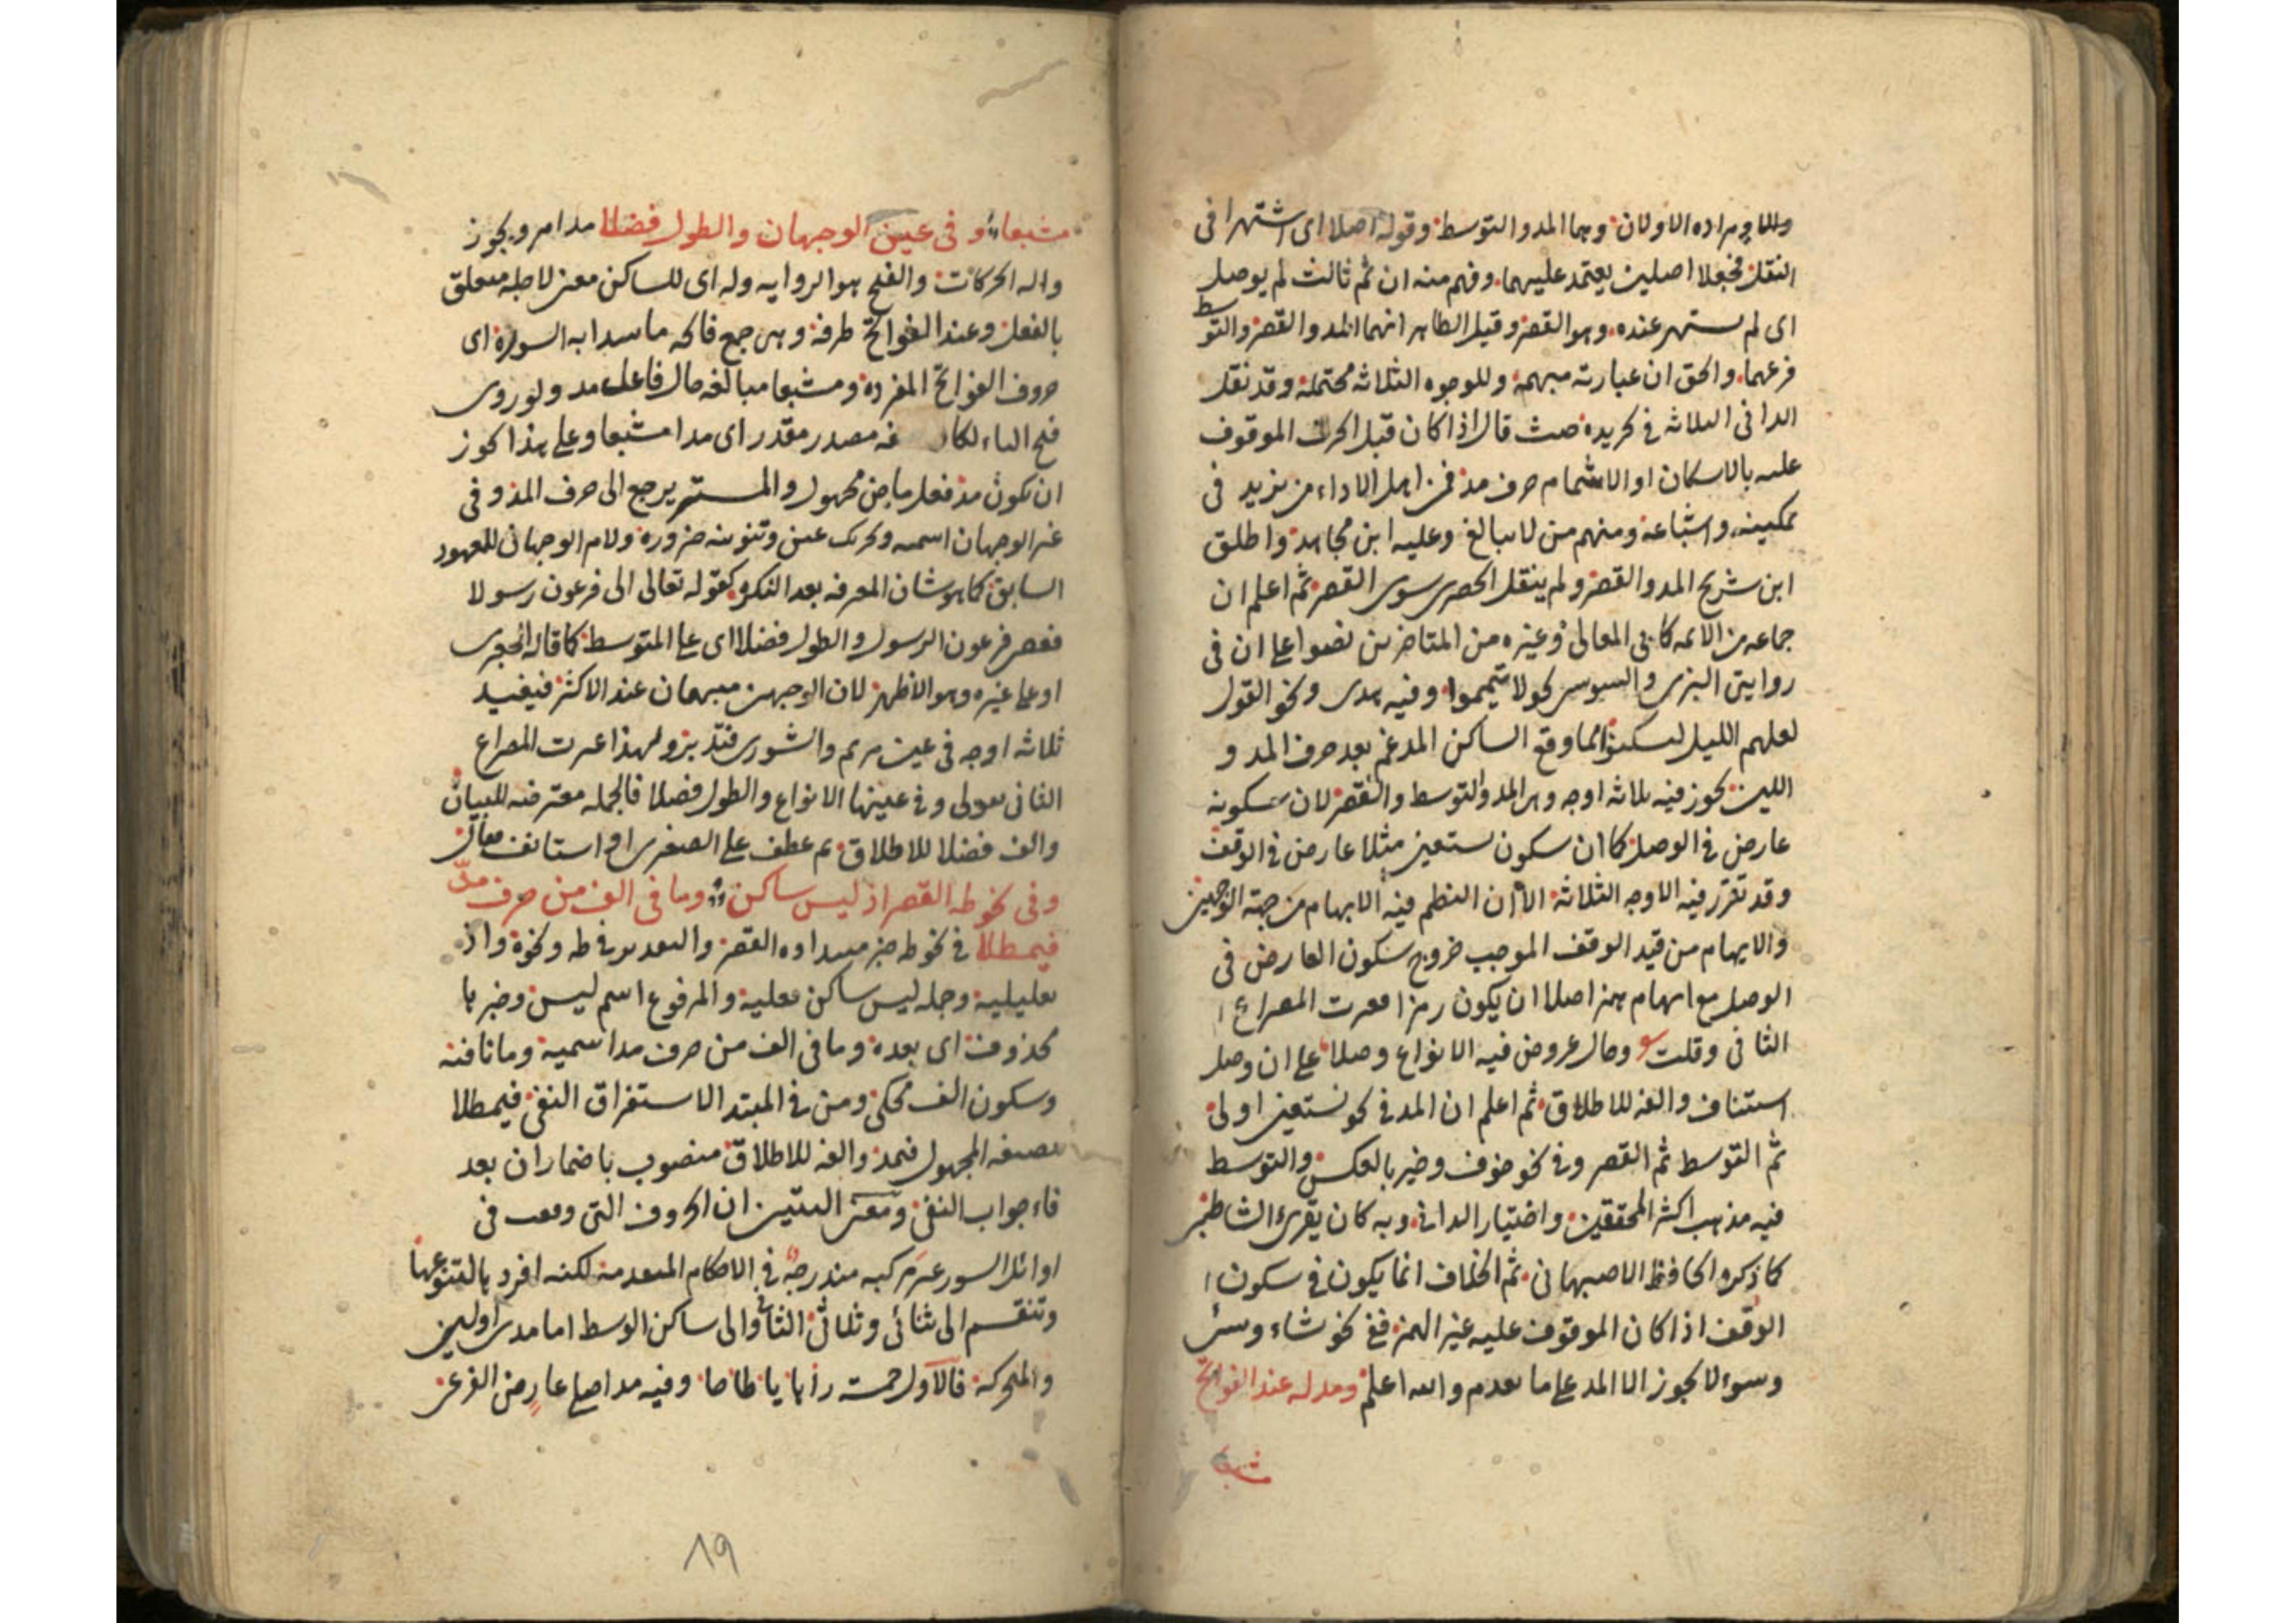 ومراده الاولان وهما المد والتوسط وقوله اصلا اى اشتهرا فى
النقل فجعلا اصلين يعتمد عليهما وفهم منه ان ثم ثالث لم يوصل
اى لم يشتهر عنده وهو القصر وقيل الظاهر انهما المد والقصر والتوسط
فرعهما والحق ان عبارته مبهمة وللوجوه الثلاثة محتملة وقد نقل
الدانى الثلاثة فى قال اذا كان قبل الحرف الموقوف
عليه بالاسكان او الاشمام حرف مد فمن اهل الاداء من يزيد فى
تمكينه واشباعه ومنهم من لا يبالغ وعليه ابن مجاهد واطلق
ابن شريح المد والقصر ولم ينقل الحصرى سوى القصر ثم اعلم ان
جماعة من الائمة كابى المعالى وغيره من المتاخرين نصوا على ان فى
روايتى البزى والسوسى نحو لا تيمموا وفيه هدى ونحو القول
لعلهم الليل لسكنوا مما وقع الساكن المدغم بعد حرف المد و
اللين يجوز فيه ثلاثة اوجه وهى المد والتوسط والقصر لان سكونه
عارض فى الوصل كما ان سكون نستعين مثلا عارض فى الوقف
وقد تقرر فيه الاوجه الثلاثة الا ان النظم فيه الابهام من جهة الوجهين
والايهام من قيد الوقف الموجب خروج سكون العارض فى
الوصل مع ايهام همز اصلا ان يكون رمزا فغيرت المصراع ا
الثانى وقلت وحال عروض فيه الانواع وصلا على ان وصل
استئناف والفه للاطلاق ثم اعلم ان المد فى نحو نستعين اولى
ثم التوسط ثم القصر وفى نحو خوف وخير بالعكس والتوسط
فيه مذهب اكثر المحققين واختيار الدانى وبه كان يقرئ الشاطبى
كما ذكره الحافظ الاصبهانى ثم الخلاف انما يكون فى سكون ا
الوقف اذا كان الموقوف عليه غير الهمز ففى نحو شاء وسئ
وسوء لا يجوز الا المد على ما تقدم والله اعلم ومد له عند الفواتح
مشبعا
مشبعا وفى عين الوجهان والطول فضلا مد امر ويجوز
والفتح هو الرواية وله اى للساكن متعلق
بالفعل وعند الفواتح ظرفه وهى جمع فاتحة ما يبدا به السورة اى
حروف الفواتح المفردة ومشبعا مبالغة حال فاعل مد ولو روى
فتح الباء مصدر مقدر اى مدا مشبعا وعلى هذا يجوز
ان يكون مد فعل ماض مجهول والمستتر يرجع الى حرف المد وفى
عين الوجهان اسمية وتحريك عين وتنوينه ضرورة ولام الوجهان للمعهود
السابق كما هو شان المعرفة بعد النكرة كقوله تعالى الى فرعون رسولا
فعصى فرعون الرسول والطول فضلا اى على المتوسط كما قاله الجعبرى
او على غيره وهو الاظهر لان الوجهين مبهمان عند الاكثر فيفيد
ثلاثة اوجه فى عين مريم والشورى فتدبر ولهذا غيرت المصراع
الثانى بقولى وفى عينها الانواع والطول فضلا فالجملة معترضة للبيان
والف فضلا للاطلاق ثم عطف على الصغرى او استانف فقال
وفى نحو طه القصر اذ ليس ساكن وما فى الف من حرف مد
فيمطلا فى نحو طه خبر مبتداؤه القصر والتقدير فى طه ونحوه واذ
تعليلية وجملة ليس ساكن فعلية والمرفوع اسم ليس وخبرها
محذوف اى بعده وما فى الف من حرف مد اسمية وما نافية
وسكون الف محكى ومن فى المبتدا لاستغراق النفى فيمطلا
بصيغة المجهول فيمد والفه للاطلاق منصوب باضمار ان بعد
فاء جواب النفى ومعنى البيتين ان الحروف التى وقعت فى
اوائل السور غير مركبة مندرجة فى الاحكام المتقدمة لكنه افرد بالتنوعها
وتنقسم الى ثنائى وثلاثى الثانى والى ساكن الوسط اما مدى اولين
والمتحركة فالاول خمسة را ها يا طا حا وفيه مد اصلى عارض الفرعى
١٩